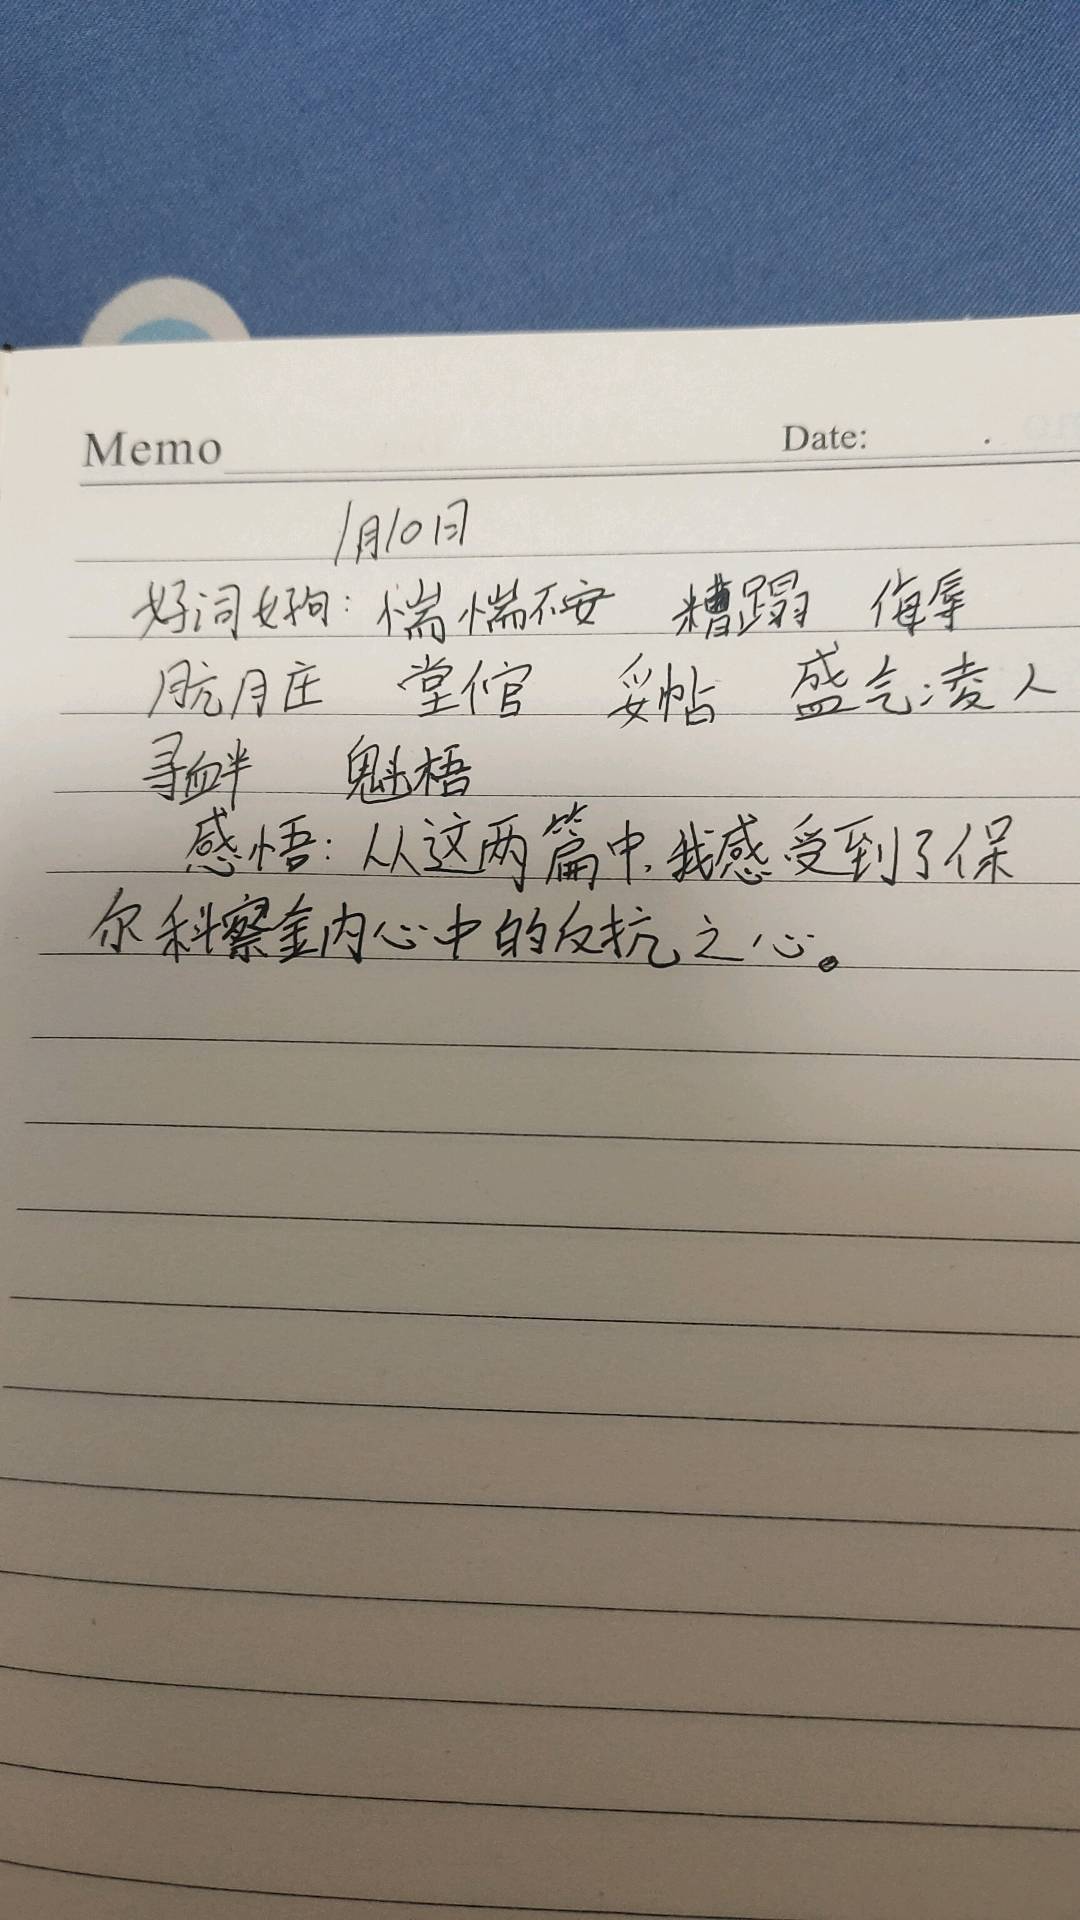 Memo Date:
1月10日
好词好句: 惴惴不安 糟蹋 侮辱
肮脏 堂倌 妥帖 盛气凌人
寻衅 魁梧
感悟: 从这两篇中,我感受到了保
尔科察金内心中的反抗之心。